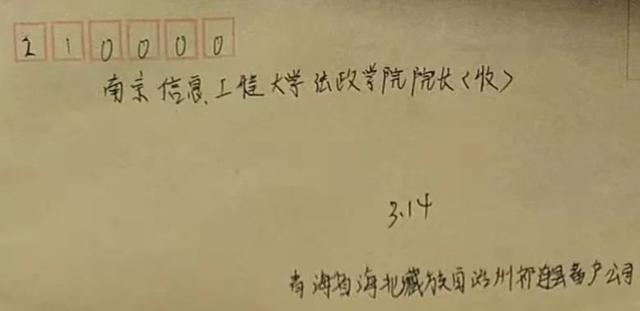 210000
南京信息工程大学法政学院院长<收>
3.14
青海省海北藏族自治州祁连县畜产公司